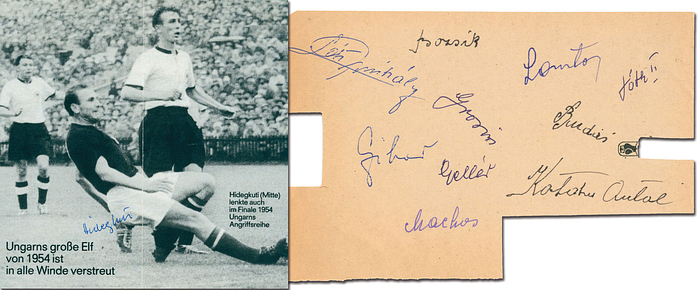 Hidegkuti (Mitte)
lenkte auch
im Finale 1954
Ungarns
Angriffsreihe
Hidegkuti
Ungarns große Elf
von 1954 ist
in alle Winde verstreut
Bozsik
Lantos
Tóth II.
Grosics
Budai
Czibor
Gellér
Kotász Antal
Machos